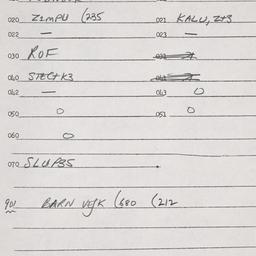 020 Z1MPU (235 021 KALU, Z+3
022 — 023 —
030 ROF
040 STEC+K3
042 — 043 O
050 O 051 O
060 O
070 SLUP35
901 BARN (680 (212